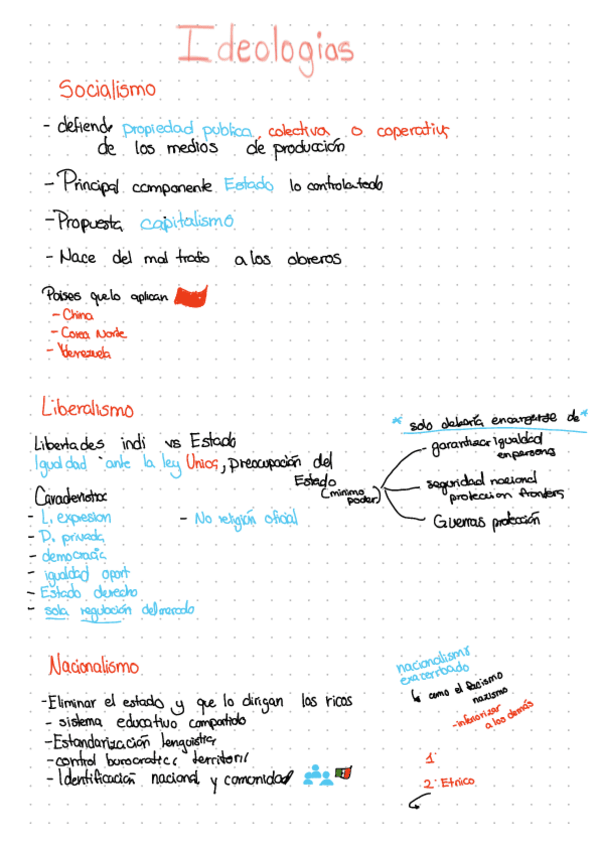 Ideologias
Socialismo
- defiende propiedad publica, colectiva o coperativa
de los medios de producción
- Principal componente Estado lo controla todo
- Propuesta capitalismo
- Nace del mal trato a los obreros
Paises que lo aplican
- China
- Corea Norte
- Venezuela
Liberalismo
Libertades indi vs Estado
Igualdad ante la ley Unica, preocupación del
Estado
(minimo
poder)
* solo deberia encargarse de *
- garantizar igualdad
en persona
seguridad nacional
proteccion fronteras
Guerras protección
Caracteristica
- L. expresion
- No religión oficial
- D. privada
- democracia
- igualdad oport
- Estado derecho
- sola regulación del mercado
Nacionalismo
- Eliminar el estado y que lo dirigan los ricos
- sistema educativo compartido
- Estandarización lenguistica
- control burocratico territorial
- Identificación nacional y comunidad
nacionalismo
exacerbado
↳ como el facismo
nazismo
- inferiorizar
a los demás
1.
2. Etnico